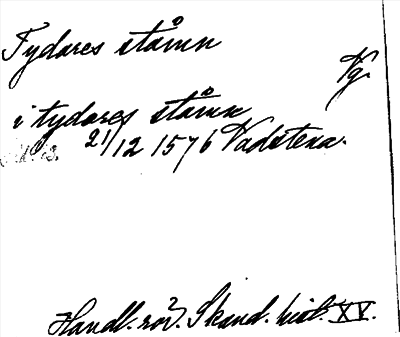 Tydares stämn
Vg.
i tydares stämn
21/12 1576 Vadstena.
Handl. rör. Skand. hist. XV.